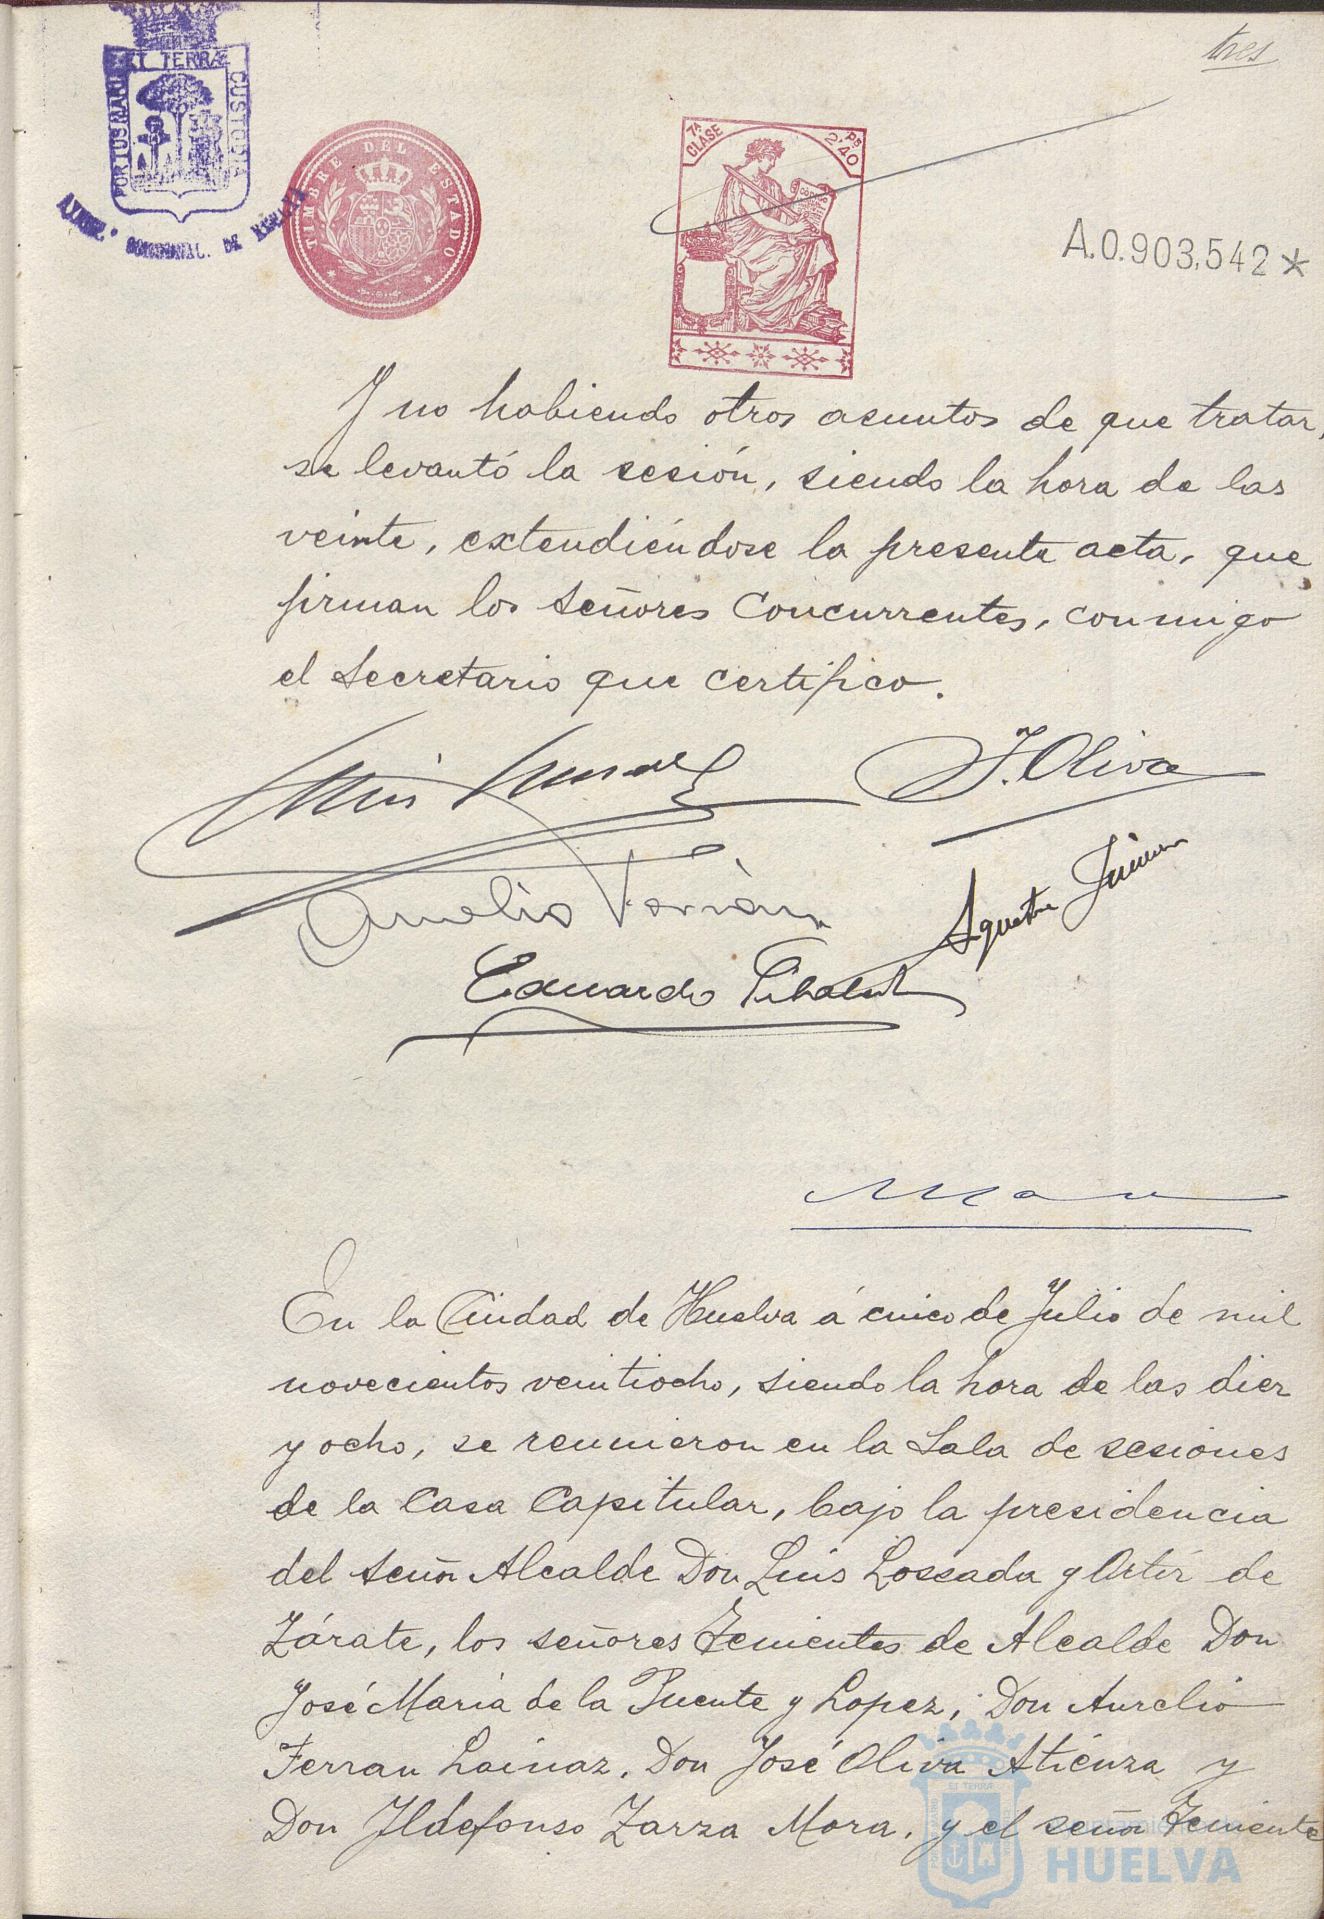 tres
ET TERRÆ
PORTUS MARIS
CUSTODIA
DE
TIMBRE DEL ESTADO
7ª CLASE
Pts 2'40
A.0.903,542*
Y no habiendo otros asuntos de que tratar,
se levantó la sesión, siendo la hora de las
veinte, extendiéndose la presente acta, que
firman los señores Concurrentes, conmigo
el Secretario que certifico.
J. Oliva
Aurelio
Agustín Jiménez
Eduardo
En la Ciudad de Huelva á cinco de Julio de mil
novecientos veintiocho, siendo la hora de las diez
y ocho, se reunieron en la Sala de sesiones
de la Casa Capitular, bajo la presidencia
del señor Alcalde Don Luis Loscadu y Ortiz de
Zárate, los señores Tenientes de Alcalde Don
José María de la Puente y Lopez, Don Aurelio
Ferran Lainaz, Don José Oliva Atienza y
Don Ildefonso Zarza Mora, y el señor Teniente
Ayuntamiento de
HUELVA